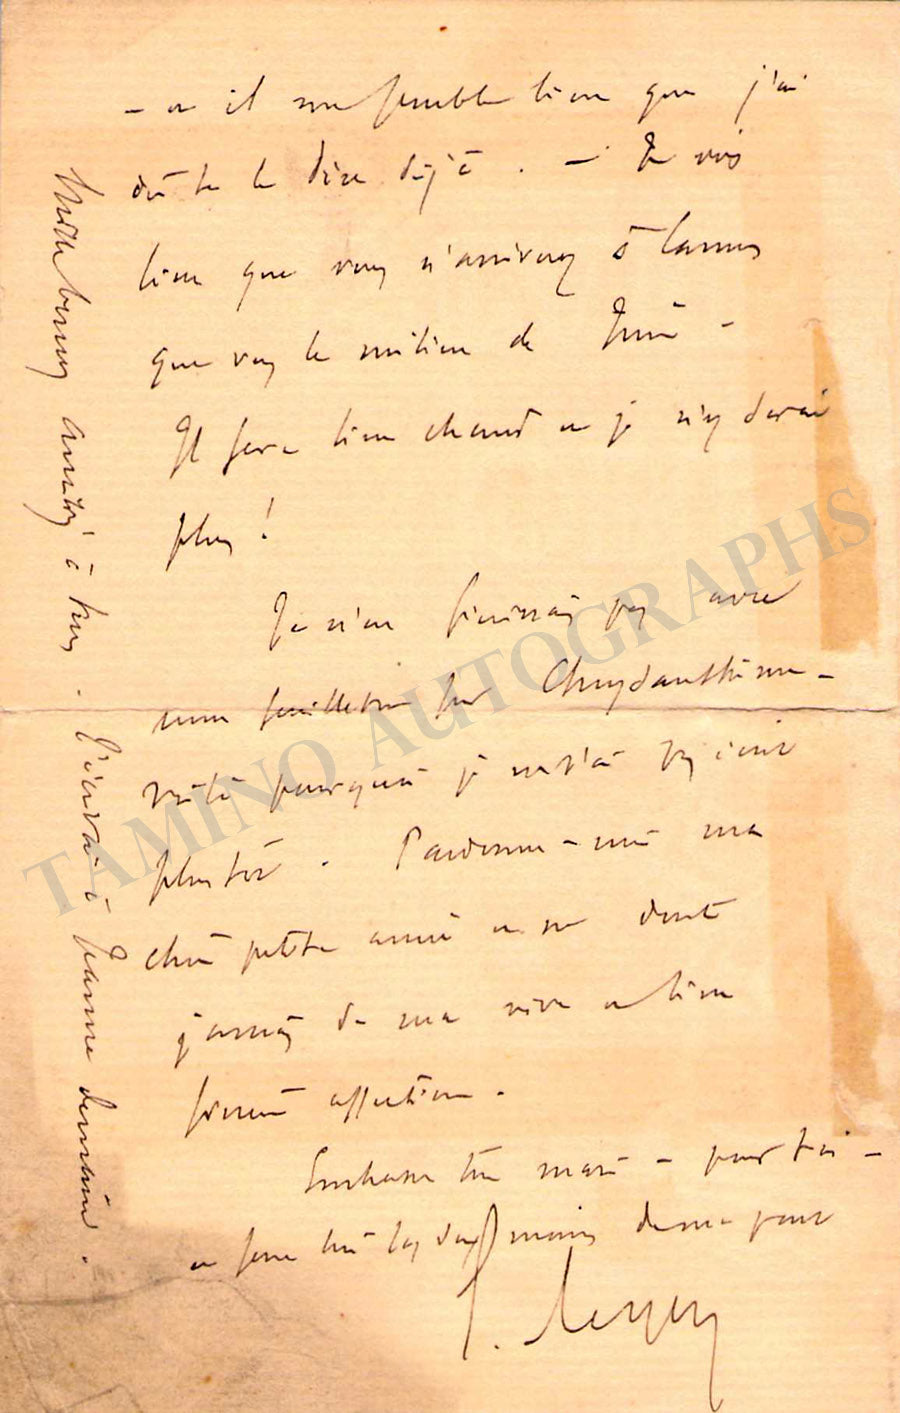 - et il me semble bien que j'ai
dû te le dire déjà. - Je vois
bien que vous n'arriverez à Cannes
que vers le milieu de Juin -
Il fera bien chaud et je n'y serai
plus!
Je n'en finissais pas avec
mon feuilleton sur Chrysanthème -
voilà pourquoi je ne t'ai pas écrit
plus tôt. Pardonne-moi ma
chère petite amie et ne doute
jamais de ma vive et bien
sincère affection.
Embrasse ton mari - pour toi -
et serre lui les deux mains de ma part
E. Reyer
Mille bonnes amitiés à tous. J'écrirai à Jeanne demain.
TAMINO AUTOGRAPHS